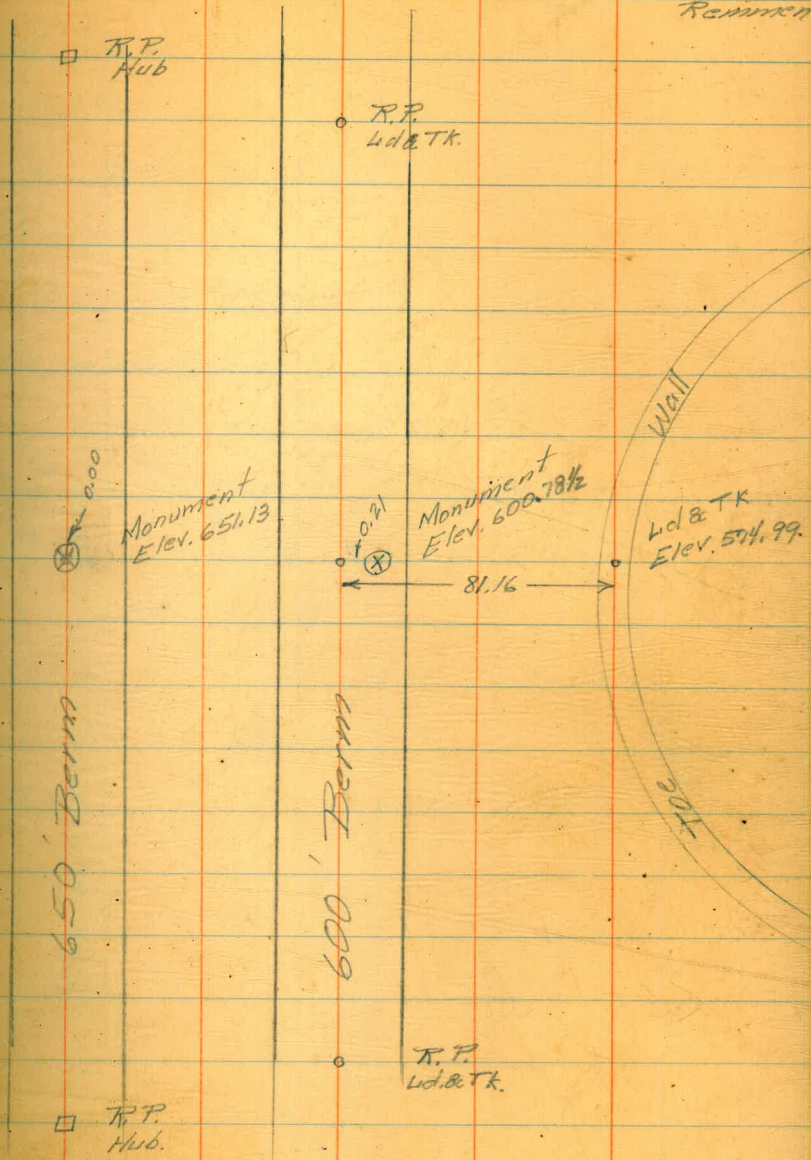 Remmen
R.P.
Hub
R.P.
Ld & Tk.
Wall
0.00
Monument
Elev. 651.13
0.21
Monument
Elev. 600.78½
Ld & Tk
Elev. 574.99.
81.16
650' Berm
600' Berm
Toe
R.P.
Ld. & Tk.
R.P.
Hub.